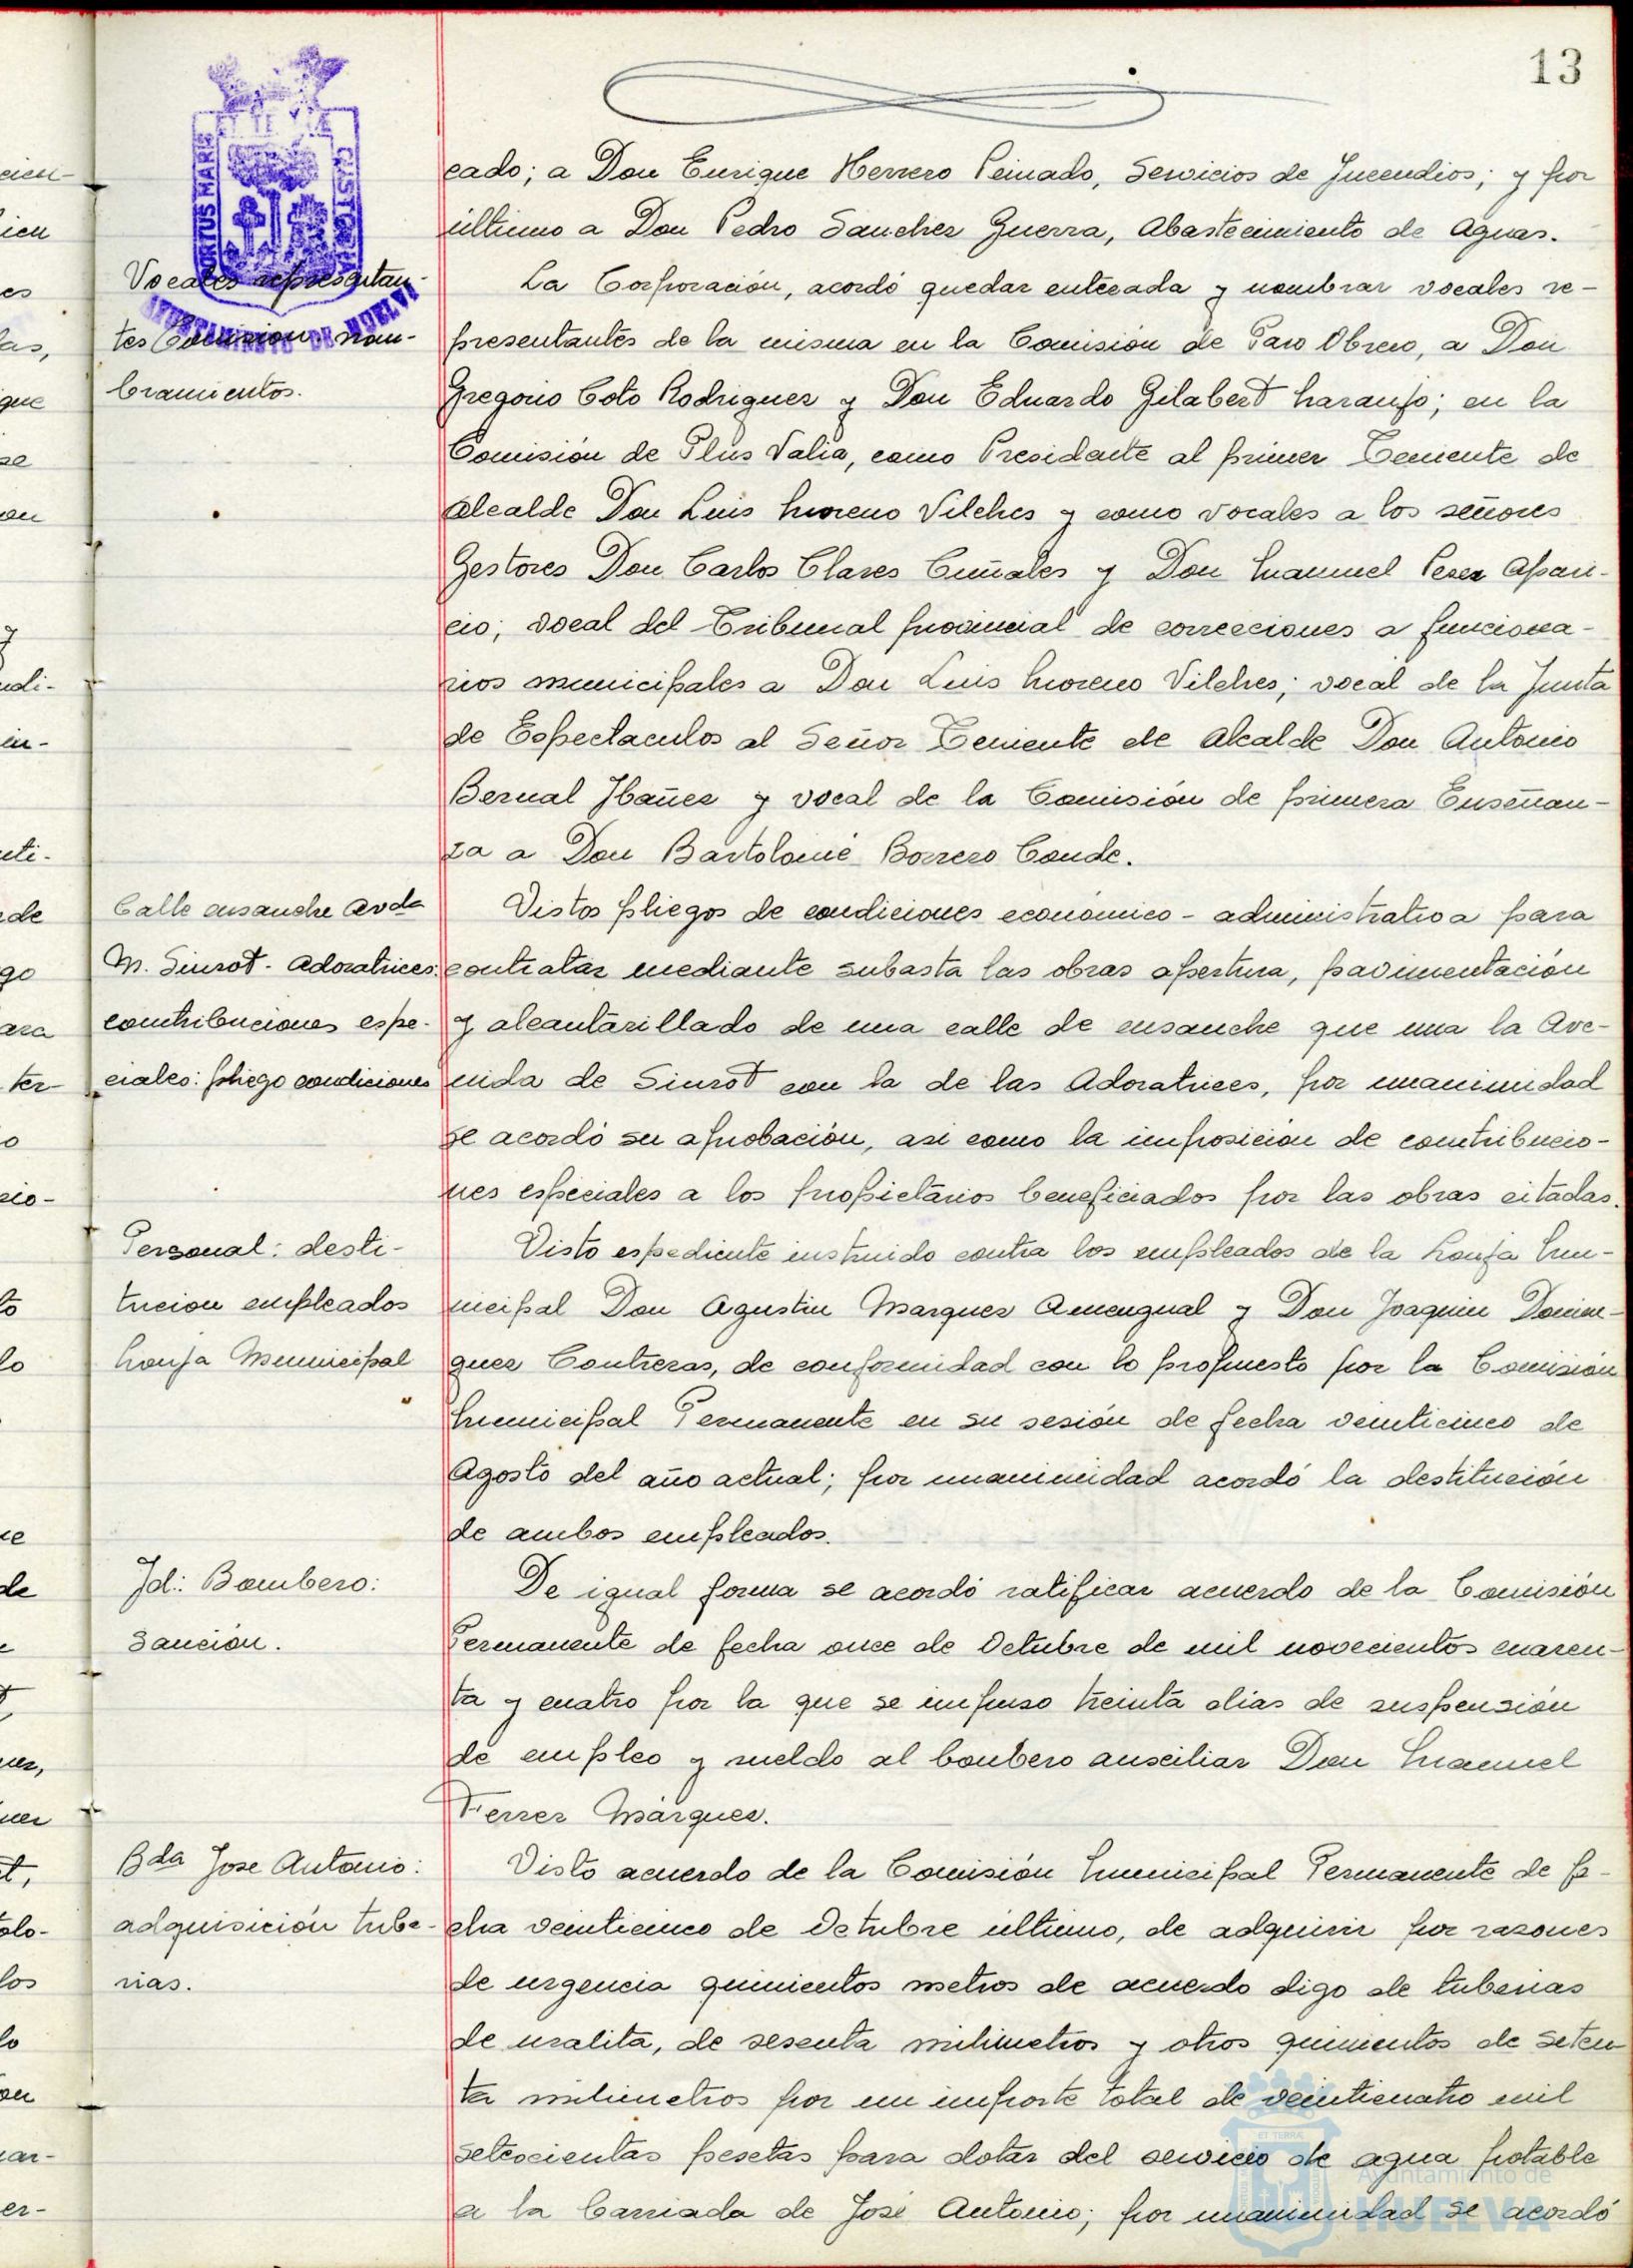 13
cado; a Don Enrique Herrero Peinado, Servicios de Incendios; y por
último a Don Pedro Sanchez Guerra, Abastecimiento de Aguas.
Vocales representan-
tes Comision: nom-
bramientos.
La Corporación, acordó quedar enterada y nombrar vocales re-
presentantes de la misma en la Comisión de Paro Obrero, a Don
Gregorio Coto Rodriguez y Don Eduardo Gilabert Naranjo; en la
Comisión de Plus Valia, como Presidente al primer Teniente de
Alcalde Don Luis Moreno Vilches y como vocales a los señores
Gestores Don Carlos Clares Cuñales y Don Manuel Perez Apari-
cio; vocal del Tribunal provincial de correcciones a funciona-
rios municipales a Don Luis Moreno Vilches; vocal de la Junta
de Espectaculos al Señor Teniente de Alcalde Don Antonio
Bernal Ibañez y vocal de la Comisión de primera Enseñan-
za a Don Bartolomé Borrero Conde.
Calle ensanche Avda
M. Siurot - Adoratrices:
contribuciones espe-
ciales: pliego condiciones
Vistos pliegos de condiciones económico - administrativa para
contratar mediante subasta las obras apertura, pavimentación
y alcantarillado de una calle de ensanche que una la Ave-
nida de Siurot con la de las Adoratrices, por unanimidad
se acordó su aprobación, asi como la imposición de contribucio-
nes especiales a los propietarios beneficiados por las obras citadas.
Personal: desti-
tucion empleados
Lonja Municipal
Visto espediente instruido contra los empleados de la Lonja Mu-
nicipal Don Agustin Marquez Amengual y Don Joaquin Domin-
guez Contreras, de conformidad con lo propuesto por la Comisión
Municipal Permanente en su sesión de fecha veinticinco de
Agosto del año actual; por unanimidad acordó la destitución
de ambos empleados.
Id: Bombero:
Sanción.
De igual forma se acordó ratificar acuerdo de la Comisión
Permanente de fecha once de Octubre de mil novecientos cuaren-
ta y cuatro por la que se impuso treinta dias de suspensión
de empleo y sueldo al bombero ausciliar Don Manuel
Ferrer Márquez.
Bda Jose Antonio:
adquisición tube-
rias.
Visto acuerdo de la Comisión Municipal Permanente de fe-
cha veinticinco de Octubre último, de adquirir por razones
de urgencia quinientos metros de acuerdo digo de tuberias
de uralita, de sesenta milimetros y otros quinientos de seten-
ta milimetros por un importe total de veinticuatro mil
setecientas pesetas para dotar del servicio de agua potable
a la barriada de José Antonio; por unanimidad se acordó
PORTUS MARIS
ET TERRAE
CUSTODIA
AYUNTAMIENTO DE HUELVA
Ayuntamiento de
HUELVA